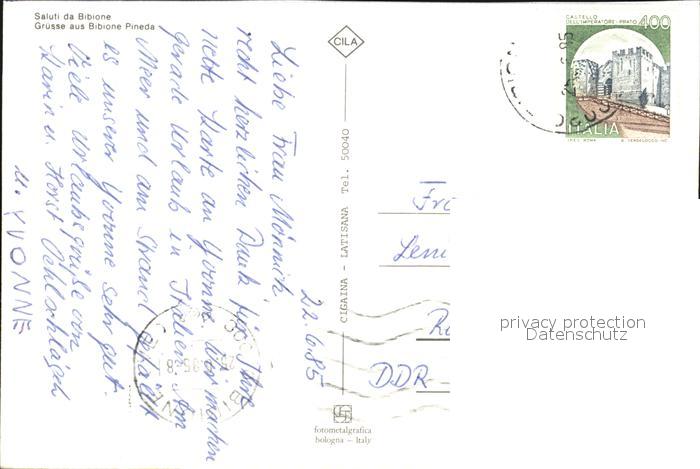 Saluti da Bibione
Grüsse aus Bibione Pineda
22.6.85
Liebe Frau Mönnich
recht herzlichen Dank für Ihre
nette Karte an Yvonne. Wir machen
gerade Urlaub in Italien. Am
Meer und am Strand gefällt
es unserer Yvonne sehr gut.
Viele Urlaubsgrüße von
Karin u. Horst
u. YVONNE
CILA
CIGAINA – LATISANA Tel. 50040
fotometalgrafica
bologna – Italy
CASTELLO
DELL'IMPERATORE · PRATO
400
ITALIA
I.P.Z.S. ROMA
Leni
DDR
privacy protection
Datenschutz